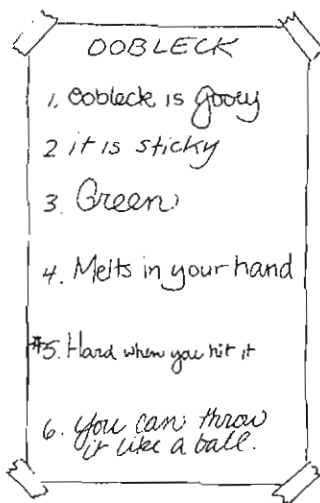 OOBLECK
1. Oobleck is gooey
2 it is sticky
3. Green
4. Melts in your hand
*5. Hard when you hit it
6. you can throw
it like a ball.